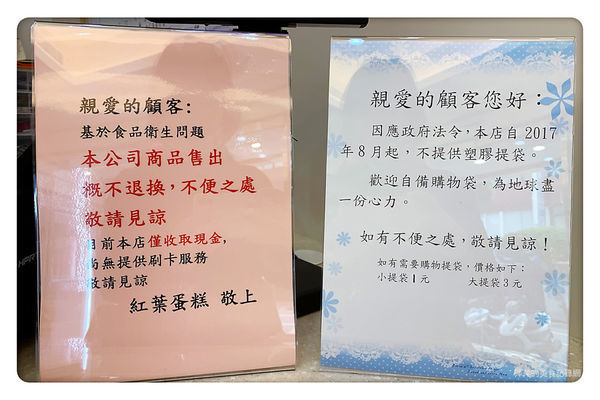 親愛的顧客:
基於食品衛生問題
本公司商品售出
概不退換,不便之處
敬請見諒
目前本店僅收取現金,
尚無提供刷卡服務
敬請見諒
紅葉蛋糕 敬上
親愛的顧客您好:
因應政府法令,本店自2017
年8月起,不提供塑膠提袋。
歡迎自備購物袋,為地球盡
一份心力。
如有不便之處,敬請見諒!
如有需要購物提袋,價格如下:
小提袋1元 大提袋3元